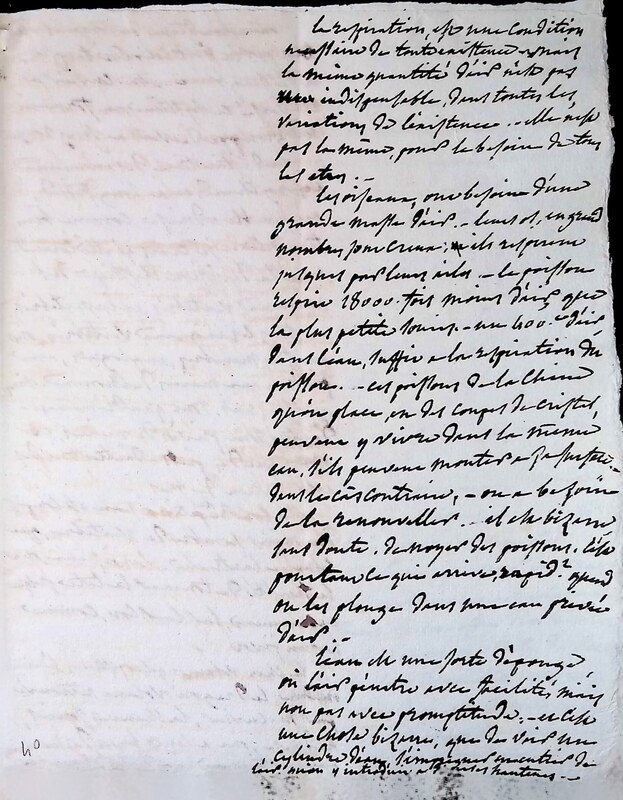 la respiration, est une condition
necessaire de toute existence mais
la même quantité d'air n'est pas
indispensable, dans toutes les
variations de l'existence. - elle n'est
pas la même, pour le besoin de tous
les etres. -
les oiseaux, ont besoin d'une
grande masse d'air. - leurs os, en grand
nombre, sont creux; ils respirent
jusques par leurs ailes. - le poisson
respire 18000. fois moins d'air que
la plus petite souris. - un 400.e d'air
dans l'eau, suffit a la respiration du
poisson. - ces poissons de la Chine
qu'on place, en des coupes de cristal,
peuvent y vivre dans la même
eau, s'ils peuvent monter a sa surface. -
dans le cas contraire, - on a besoin
de la renouveller. - il est bizarre,
sans doute, de noyer des poissons, c'est
pourtant ce qui arrive, rapid.t quand
on les plonge dans une eau privée
d'air. -
l'eau est une sorte d'éponge,
où l'air pénètre avec facilité mais
non pas avec promptitude. - et c'est
une chose bizarre, que de voir une
cylindre d'eau, s'impregner au contraire de
l'air, y introduit a
40